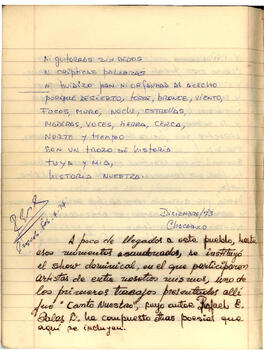 NI GUITARRAS SIN DEDOS
NI CRÍPTICAS PALABRAS
NI AL ACECHO
PORQUE DESIERTO, TODOS, BRONCE, VIENTO,
FOCOS, MURO, NOCHE, ESTRELLAS,
MADERAS, VOCES, HIERBA, CERCA,
NORTE Y TIEMPO
SON UN TROZO DE HISTORIA
TUYA Y MIA,
HISTORIA NUESTRA.
DICIEMBRE/73
CHACABUCO
A poco de llegados a este pueblo, hasta
esos momentos abandonado, se instituyó
el show dominical, en el que participaron
artistas de entre nosotros mismos, uno de
los primeros trabajos presentados allí
fue "Canto Nuestro", cuyo autor Rafael E.
Salas C. ha compuesto otras poesías que
aquí se incluyen.